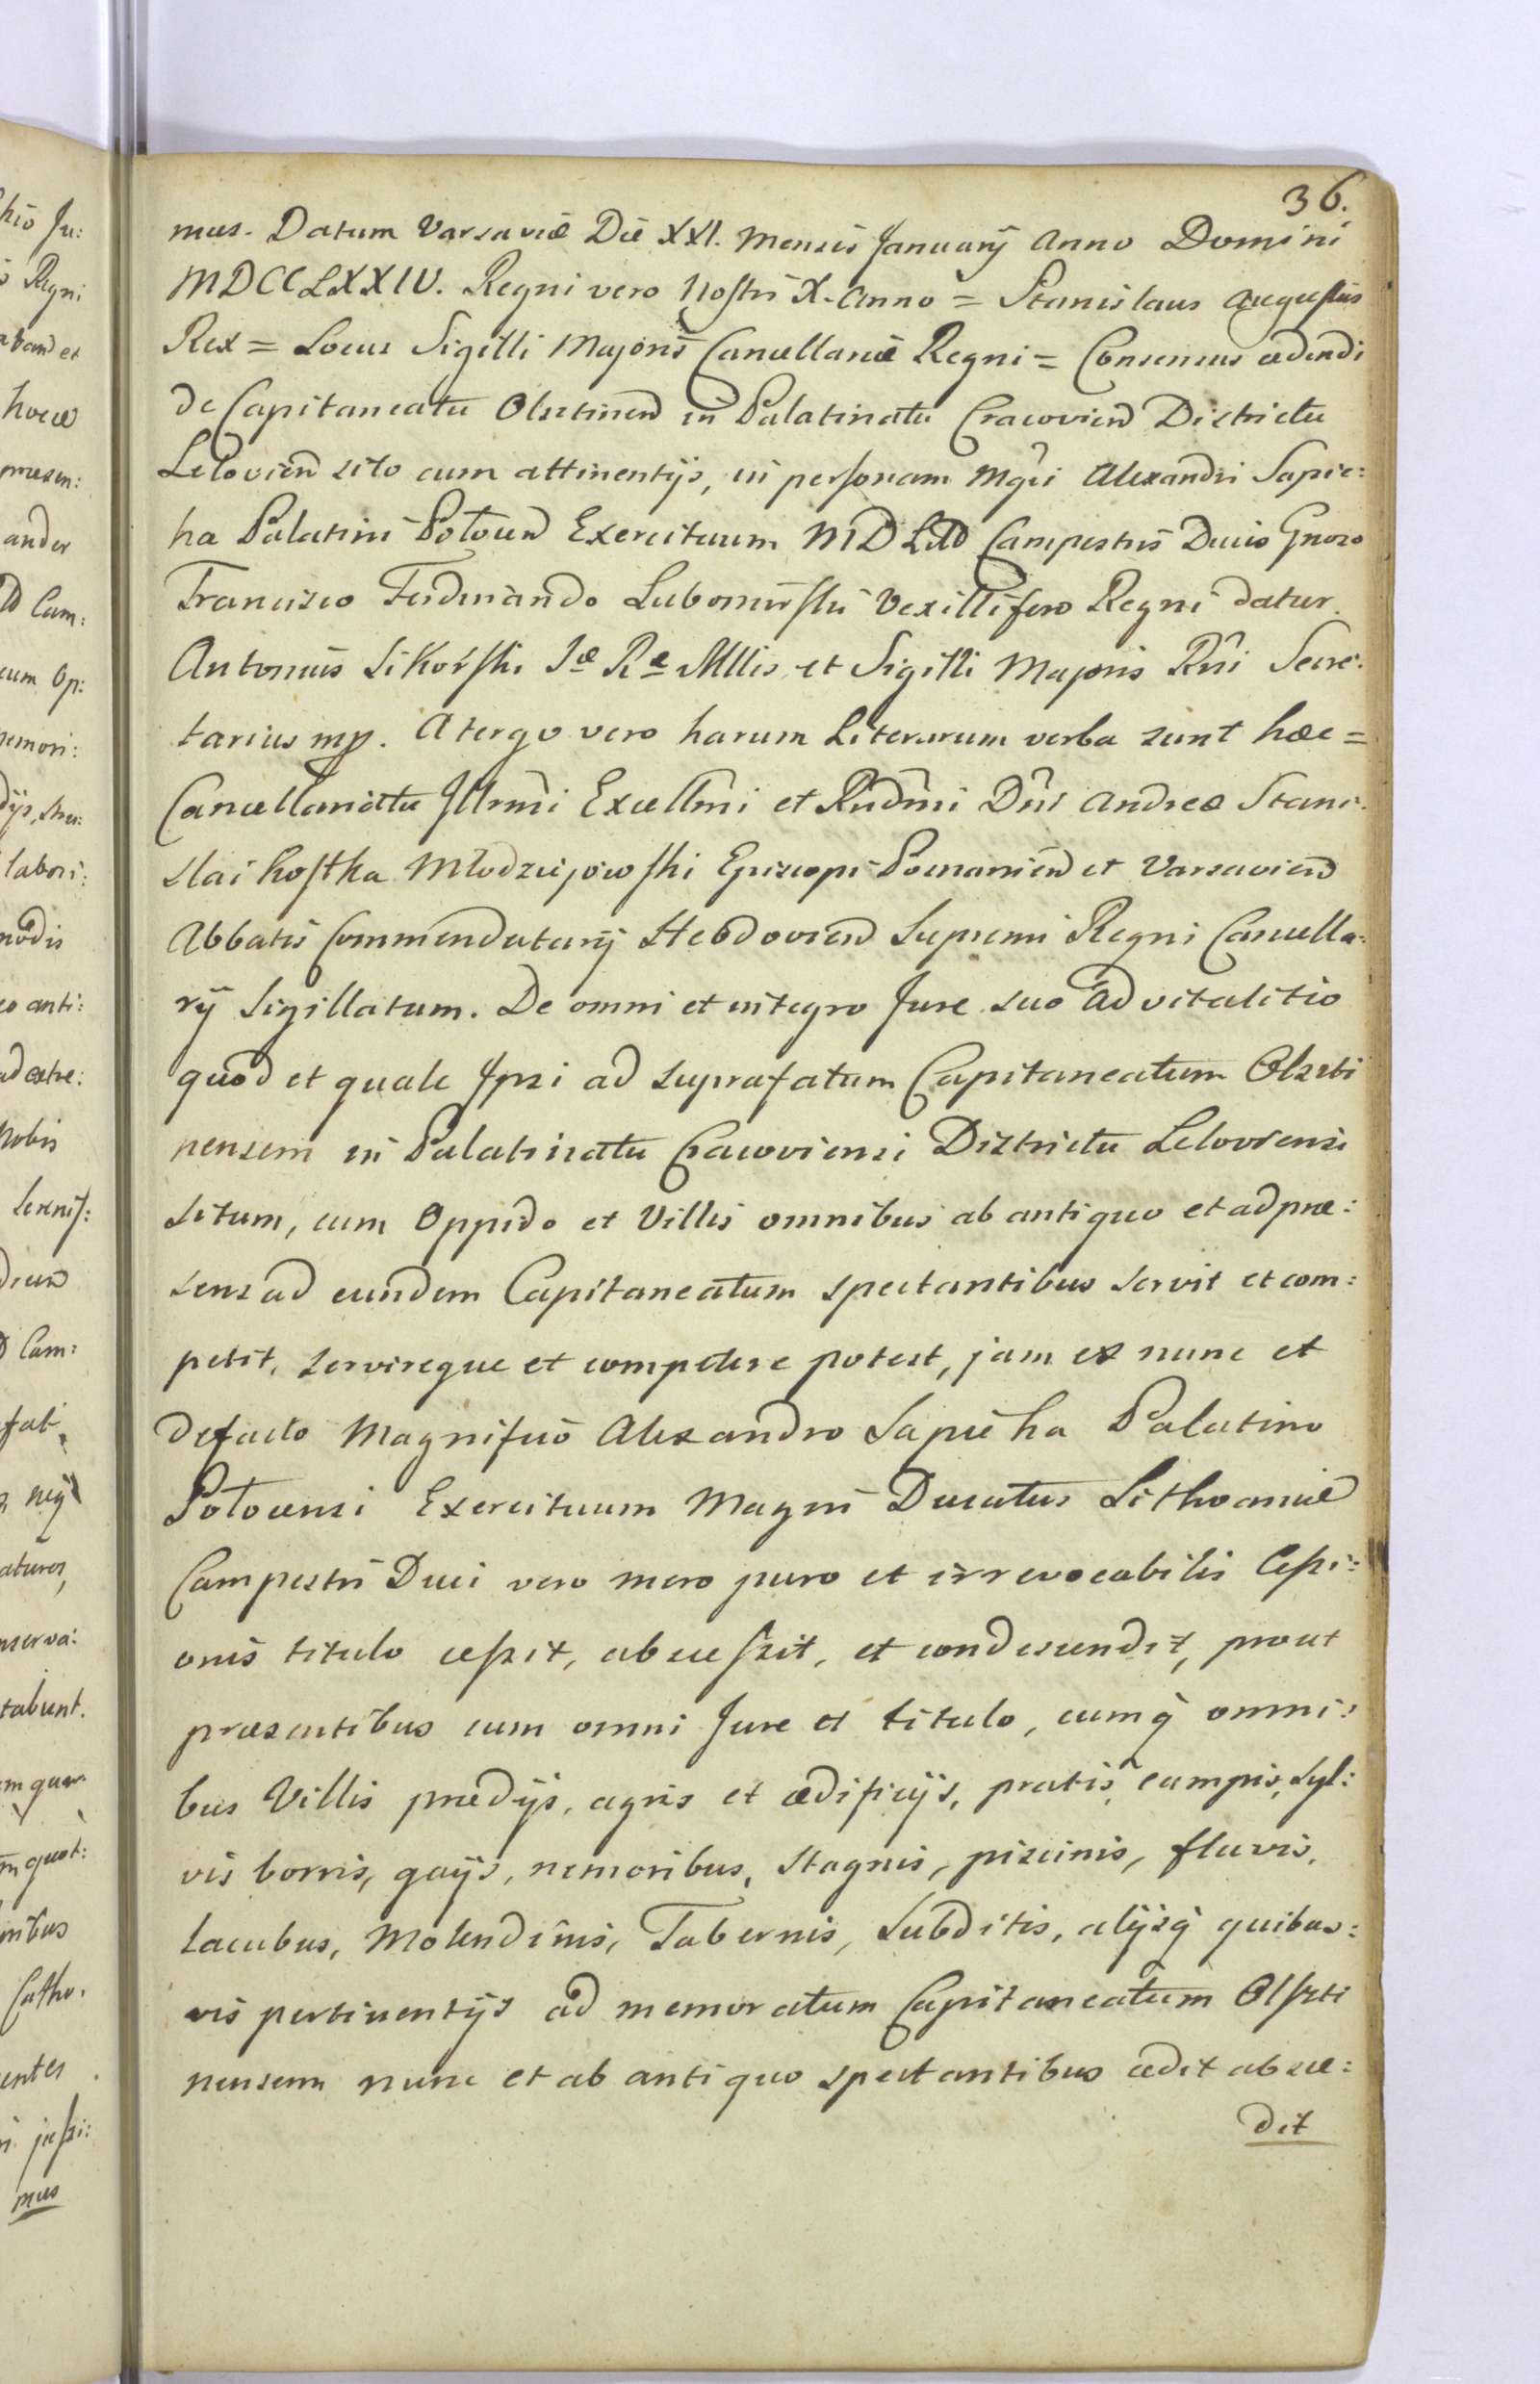 36.
mus. Datum Varsaviæ Die XXI. Mensis Januarij Anno Domini
MDCCLXXIV. Regni vero Nostri X. Anno = Stanislaus Augustus
Rex = Locus Sigilli Majoris Cancellariæ Regni = Consensus cedendi
de Capitaneatu Olsztinen in Palatinatu Cracovien Districtu
Lelovien sito cum attinentijs, in personam Mgci Alexandri Sapie:
ha Palatini Polocen Exercituum MDLitt Campestris Ducis Gnoso
Francisco Ferdinando Lubomirski Vexillifero Regni datur.
Antonius Sikorski Sæ Ræ Mttis et Sigilli Majoris Rni Secre:
tarius mp. A tergo vero harum Literarum verba sunt hæc =
Cancellariatu Jllrmi Excellmi et Rndmi Dni Andreæ Stani:
slai Kostka Młodziejowski Episcopi Posnanien et Varsavien
Abbatis Commendatarij Hebdovien Supremi Regni Cancella:
rij Sigillatum. De omni et integro Jure suo Advitalitio
quod et quale Jpsi ad suprafatum Capitaneatum Olszti
nensem in Palatinatu Cracoviensi Districtu Leloviensi
situm, cum Oppido et Villis omnibus ab antiquo et ad præ:
sens ad eundem Capitaneatum spectantibus servit et com:
petit, servireque et competere potest, jam ex nunc et
defacto Magnifico Alexandro Sapieha Palatino
Polocensi Exercituum Magni Ducatus Lithvaniæ
Campestri Duci vero mero puro et irrevocabilis Cessi:
onis titulo cessit, abscessit, et condescendit, prout
præsentibus cum omni Jure et titulo, cumq omni:
bus Villis prædijs, agris et ædificijs, pratis, campis, syl:
vis borris, gaijs, nemoribus, stagnis, piscinis, fluvis,
lacubus, Molendinis, Tabernis, Subditis, alijsq quibus:
vis pertinentijs ad memoratum Capitaneatum Olszti
nensem nunc et ab antiquo spectantibus cedit absce:
dit